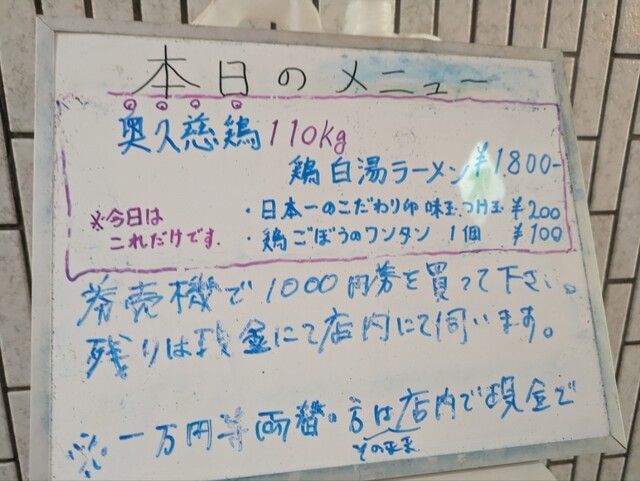 本日のメニュー
奥久慈鶏110kg
鶏白湯ラーメン¥1.800-
・日本一のこだわり卵 味玉つけ玉 ¥200
※今日は
これだけです.
・鶏ごぼうのワンタン 1個 ¥100
券売機で1000円券を買って下さい。
残りは現金にて店内にて伺います。
※一万円等両替の方は店内で現金で
そのまま